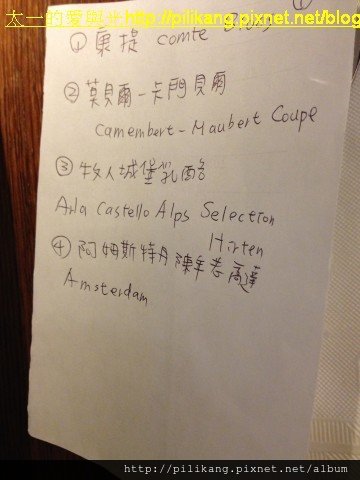 太一的愛與光http://pilikang.pixnet.net/blog
① 康提 comte
② 莫貝爾-卡門貝爾
Camembert-Maubert Coupe
③ 牧人城堡乳酪
Arla Castello Alps Selection
Hirten
④ 阿姆斯特丹陳年老高達
Amsterdam
http://pilikang.pixnet.net/album